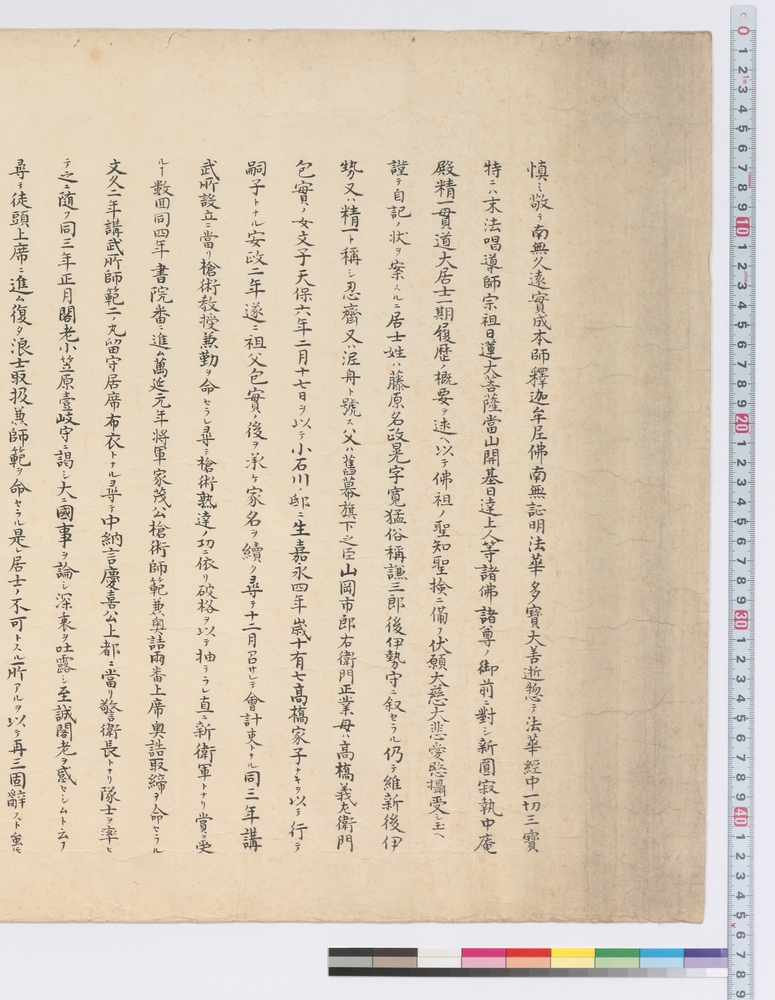 慎ミ敬テ南無久遠實成本師釋迦牟尼佛南無証明法華多寳大善逝惣テ法華經中一切三寳
特ニハ末法唱導師宗祖日蓮大菩薩當山開基日達上人等諸佛諸尊ノ御前ニ對シ新圓寂執中庵
殿精一貫道大居士一期履歴ノ概要ヲ述ヘ以テ佛祖ノ聖知聖検ニ備フ伏願大慈大悲愛愍攝受シ玉ヘ
謹テ自記ノ状ヲ案スルニ居士姓ハ藤原名政晃字寛猛俗稱謙三郎後伊勢守ニ叙セラル仍テ維新後伊
勢又ハ精一ト稱シ忍齋又ハ泥舟ト號ス父ハ舊幕旗下之臣山岡市郎右衛門正業母ハ高橋義左衛門
包實ノ女文子天保六年二月十七日ヲ以テ小石川ノ邸ニ生嘉永四年歳十有七高橋家子ナキヲ以テ行テ
嗣子トナル安政二年遂ニ祖父包實ノ後ヲ承ケ家名ヲ續ク尋テ十二月召サレテ會計吏トナル同三年講
武所設立ニ當リ槍術教授兼勤ヲ命セラレ尋テ槍術熟達ノ功ニ依リ破格ヲ以テ抽テラレ直ニ新衛軍トナリ賞ヲ受
ルー數回同四年書院番ニ進ム萬延元年将軍家茂公槍術師範兼奥詰兩番上席奥詰取締ヲ命セラル
文久二年講武所師範二ノ丸留守居席布衣トナル尋テ中納言慶喜公上都ニ當リ警衛長トナリ隊士ヲ率ヒ
テ之ニ随フ同三年正月閣老小笠原壹岐守ニ謁シ大ニ國事ヲ論シ深衷ヲ吐露シ至誠閣老ヲ感セシムト云フ
尋テ徒頭上席ニ進ム復タ浪士取扱兼師範ヲ命セラル是レ居士ノ不可トスル所アルヲ以テ再三固辭スト雖モ
0 1 2 3 4 5 6 7 8 9 10 1 2 3 4 5 6 7 8 9 20 1 2 3 4 5 6 7 8 9 30 1 2 3 4 5 6 7 8 9 40 1 2 3 4 5 6 7 8 9